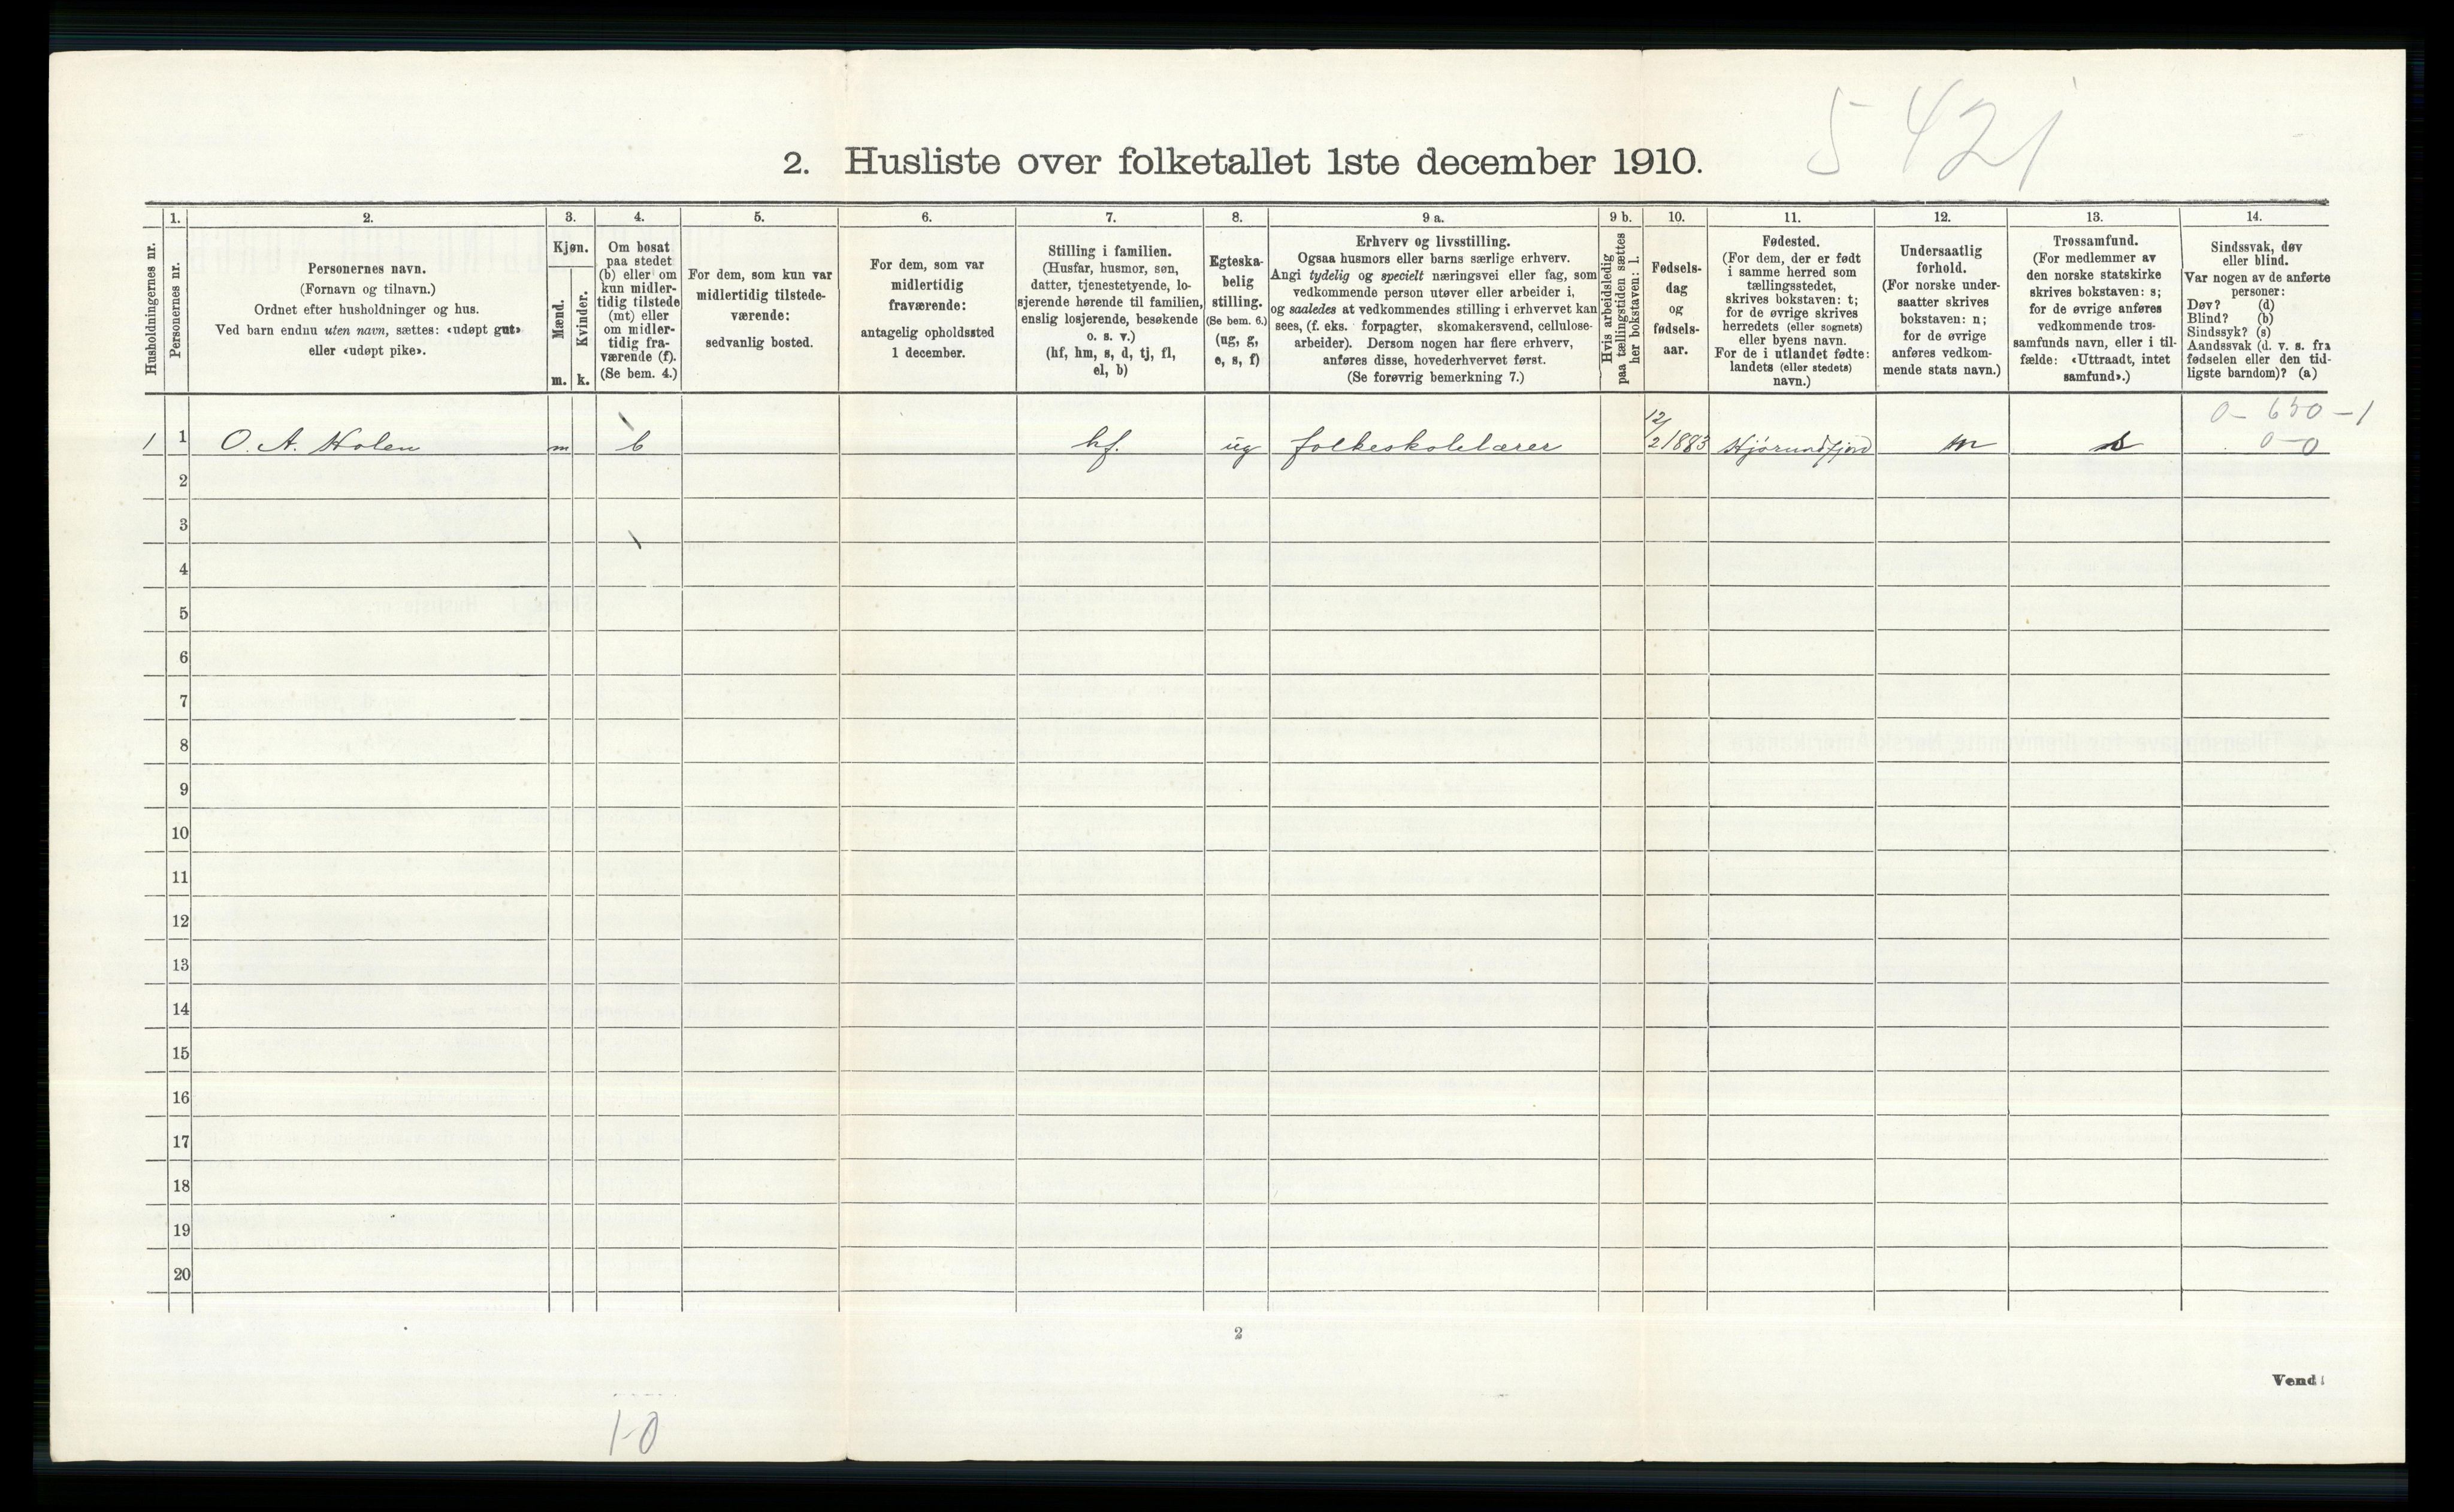 5421
2. Husliste over folketallet 1ste december 1910.
1. 2. 3. 4. 5. 6. 7. 8. 9 a. 9 b. 10. 11. 12. 13. 14.
Husholdningernes nr.
Personernes nr.
Personernes navn.
(Fornavn og tilnavn.)
Ordnet efter husholdninger og hus.
Ved barn endnu uten navn, sættes: «udøpt gut»
eller «udøpt pike».
Kjøn.
Mænd.
Kvinder.
m. k.
Om bosat
paa stedet
(b) eller om
kun midler-
tidig tilstede
(mt) eller
om midler-
tidig fra-
værende (f).
(Se bem. 4.)
For dem, som kun var
midlertidig tilstede-
værende:
sedvanlig bosted.
For dem, som var
midlertidig
fraværende:
antagelig opholdssted
1 december.
Stilling i familien.
(Husfar, husmor, søn,
datter, tjenestetyende, lo-
sjerende hørende til familien,
enslig losjerende, besøkende
o. s. v.)
(hf, hm, s, d, tj, fl,
el, b)
Egteska-
belig
stilling.
(Se bem. 6.)
(ug, g,
e, s, f)
Erhverv og livsstilling.
Ogsaa husmors eller barns særlige erhverv.
Angi tydelig og specielt næringsvei eller fag, som
vedkommende person utøver eller arbeider i,
og saaledes at vedkommendes stilling i erhvervet kan
sees, (f. eks. forpagter, skomakersvend, cellulose-
arbeider). Dersom nogen har flere erhverv,
anføres disse, hovederhvervet først.
(Se forøvrig bemerkning 7.)
Hvis arbeidsledig
paa tællingstiden sættes
her bokstaven: l.
Fødsels-
dag
og
fødsels-
aar.
Fødested.
(For dem, der er født
i samme herred som
tællingsstedet,
skrives bokstaven: t;
for de øvrige skrives
herredets (eller sognets)
eller byens navn.
For de i utlandet fødte:
landets (eller stedets)
navn.)
Undersaatlig
forhold.
(For norske under-
saatter skrives
bokstaven: n;
for de øvrige
anføres vedkom-
mende stats navn.)
Trossamfund.
(For medlemmer av
den norske statskirke
skrives bokstaven: s;
for de øvrige anføres
vedkommende tros-
samfunds navn, eller i til-
fælde: «Uttraadt, intet
samfund».)
Sindssvak, døv
eller blind.
Var nogen av de anførte
personer:
Døv? (d)
Blind? (b)
Sindssyk? (s)
Aandssvak (d. v. s. fra
fødselen eller den tid-
ligste barndom)? (a)
0 - 650 - 1
1 1 O. A. Holen m b hf. ug folkeskolelærer 12/2 1883 Hjørundfjord n s 0-0
2
3
4
5
6
7
8
9
10
11
12
13
14
15
16
17
18
19
20
2
Vend!
1-0